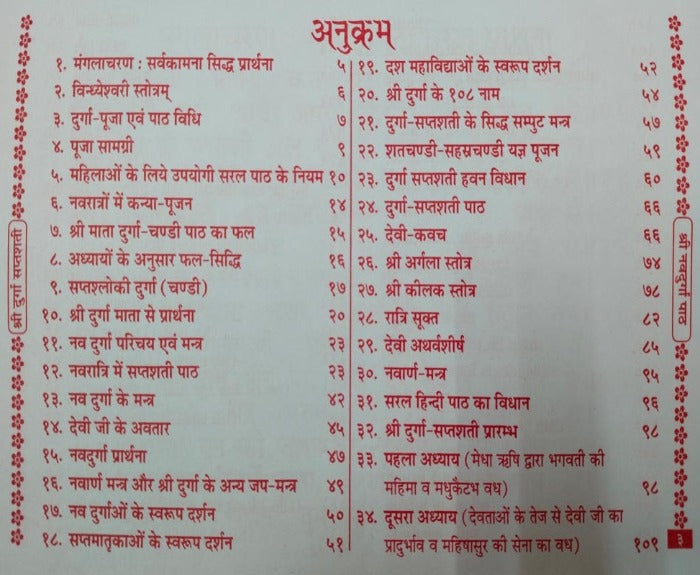 अनुक्रम
१. मंगलाचरण : सर्वकामना सिद्ध प्रार्थना ५
२. विन्ध्येश्वरी स्तोत्रम् ६
३. दुर्गा-पूजा एवं पाठ विधि ७
४. पूजा सामग्री ९
५. महिलाओं के लिये उपयोगी सरल पाठ के नियम १०
६. नवरात्रों में कन्या-पूजन १४
७. श्री माता दुर्गा-चण्डी पाठ का फल १५
८. अध्यायों के अनुसार फल-सिद्धि १६
९. सप्तश्लोकी दुर्गा (चण्डी) १७
१०. श्री दुर्गा माता से प्रार्थना २०
११. नव दुर्गा परिचय एवं मन्त्र २३
१२. नवरात्रि में सप्तशती पाठ २३
१३. नव दुर्गा के मन्त्र ४२
१४. देवी जी के अवतार ४५
१५. नवदुर्गा प्रार्थना ४७
१६. नवार्ण मन्त्र और श्री दुर्गा के अन्य जप-मन्त्र ४९
१७. नव दुर्गाओं के स्वरूप दर्शन ५०
१८. सप्तमातृकाओं के स्वरूप दर्शन ५१
१९. दश महाविद्याओं के स्वरूप दर्शन ५२
२०. श्री दुर्गा के १०८ नाम ५४
२१. दुर्गा-सप्तशती के सिद्ध सम्पुट मन्त्र ५७
२२. शतचण्डी-सहस्रचण्डी यज्ञ पूजन ५९
२३. दुर्गा सप्तशती हवन विधान ६०
२४. दुर्गा-सप्तशती पाठ ६६
२५. देवी-कवच ६६
२६. श्री अर्गला स्तोत्र ७४
२७. श्री कीलक स्तोत्र ७८
२८. रात्रि सूक्त ८२
२९. देवी अथर्वशीर्ष ८५
३०. नवार्ण-मन्त्र ९५
३१. सरल हिन्दी पाठ का विधान ९६
३२. श्री दुर्गा-सप्तशती प्रारम्भ ९८
३३. पहला अध्याय (मेधा ऋषि द्वारा भगवती की
महिमा व मधुकैटभ वध) ९८
३४. दूसरा अध्याय (देवताओं के तेज से देवी जी का
प्रादुर्भाव व महिषासुर की सेना का वध) १०९
३
श्री दुर्गा सप्तशती
श्री नवदुर्गा पाठ